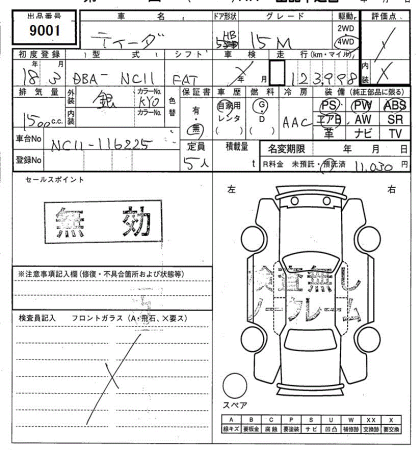 出品番号 9001
車名 ティーダ
ドア形状 5 HB
グレード 15M
駆動 2WD 4WD
評価点
初度登録 18年3月
型式 DBA-NC11
シフト FAT
車検
走行(km・マイル) 123998
排気量 1500c.c.
外装 銀
内装
カラーNo. KY0
カラーNo.
色替
保証書 有・無
車歴 自家用 レンタ
燃料 G・D
冷房 AAC
装備 (純正部品に限る)
PS PW ABS
エアB AW SR
革 ナビ TV
車台No NC11-116225
登録No
定員 5人
積載量 t
名変期限 年 月 日
R料金 未預託・預託済 11,030円
セールスポイント
無効
左 右
※注意事項記入欄(修復・不具合箇所および状態等)
検査員記入 フロントガラス(A・飛石、X要ス)
検査無し
ノークレーム
スペア
A B C P S U W X XX
線キズ 要板金 腐蝕 要塗装 サビ 凹凸 補修跡 要交換